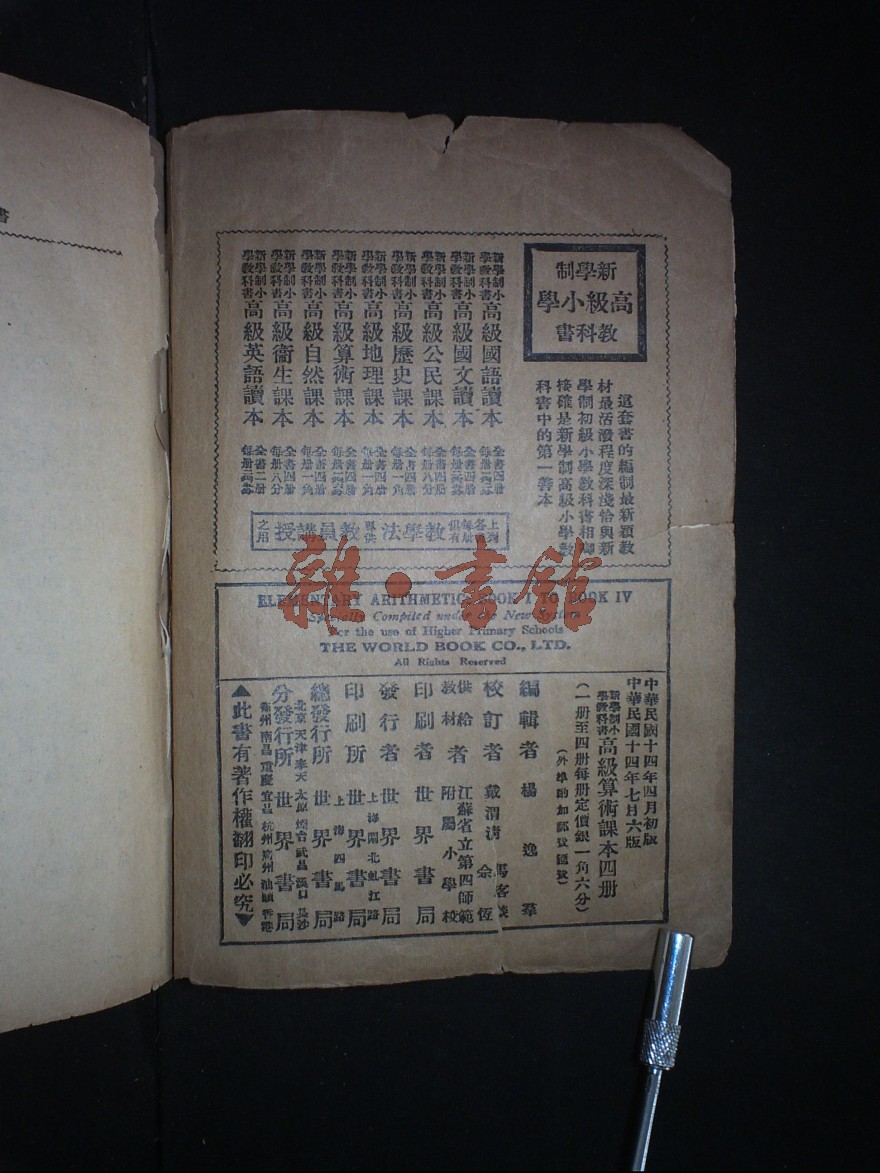 新學制
高級小學
教科書
這套書的編制最新穎教
材最活潑程度深淺恰與新
學制初級小學教科書相啣
接確是新學制高級小學教
科書中的第一善本
新學制小學教科書高級國語讀本 全書四册
新學制小學教科書高級國文讀本 全書四册
新學制小學教科書高級公民課本 全書四册 每册八分
新學制小學教科書高級歷史課本 全書四册 每册一角
新學制小學教科書高級地理課本 全書四册 每册一角
新學制小學教科書高級算術課本 全書四册
新學制小學教科書高級自然課本 全書四册 每册一角
新學制小學教科書高級衞生課本 全書四册 每册八分
新學制小學教科書高級英語讀本 全書二册
上列各書每册俱有教學法專供教員講授之用
雜·書館
ELEMENTARY ARITHMETIC BOOK I TO BOOK IV
Specially Compiled under the New System
For the use of Higher Primary Schools
THE WORLD BOOK CO., LTD.
All Rights Reserved
中華民國十四年四月初版
中華民國十四年七月六版
新學制小學教科書高級算術課本四册
(一册至四册每册定價銀一角六分)
(外埠酌加郵費匯費)
編輯者 楊逸羣
校訂者 戴渭清 馬客談 余恆
供給教材者 江蘇省立第四師範附屬小學校
印刷者 世界書局
發行者 世界書局
印刷所 上海閘北虬江路 世界書局
總發行所 上海四馬路 世界書局
分發行所 世界書局
北京 天津 奉天 太原 煙台 武昌 漢口 長沙
衡州 南昌 重慶 宜昌 杭州 廣州 汕頭 香港
▲此書有著作權翻印必究▼